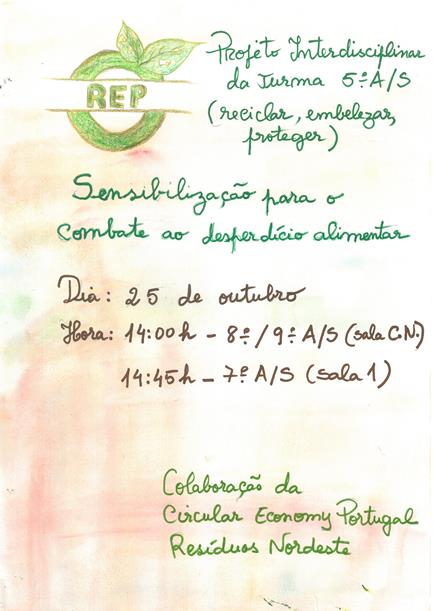 REP
Projeto Interdisciplinar
da Turma 5º A/S
(reciclar, embelezar,
proteger)
Sensibilização para o
combate ao desperdício alimentar
Dia: 25 de outubro
Hora: 14:00h - 8º/9º A/S (sala C.N.)
14:45h - 7º A/S (sala 1)
Colaboração da
Circular Economy Portugal
Resíduos Nordeste